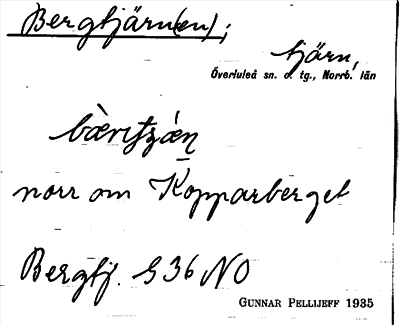 Bergtjärn(en);
tjärn,
Överluleå sn. o. tg., Norrb. län
norr om Kopparberget
Bergtj. S 36 NO
GUNNAR PELLIJEFF 1935